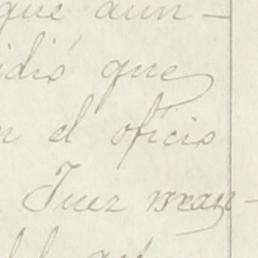 que aun-
idió que
n el oficio
Juez man-